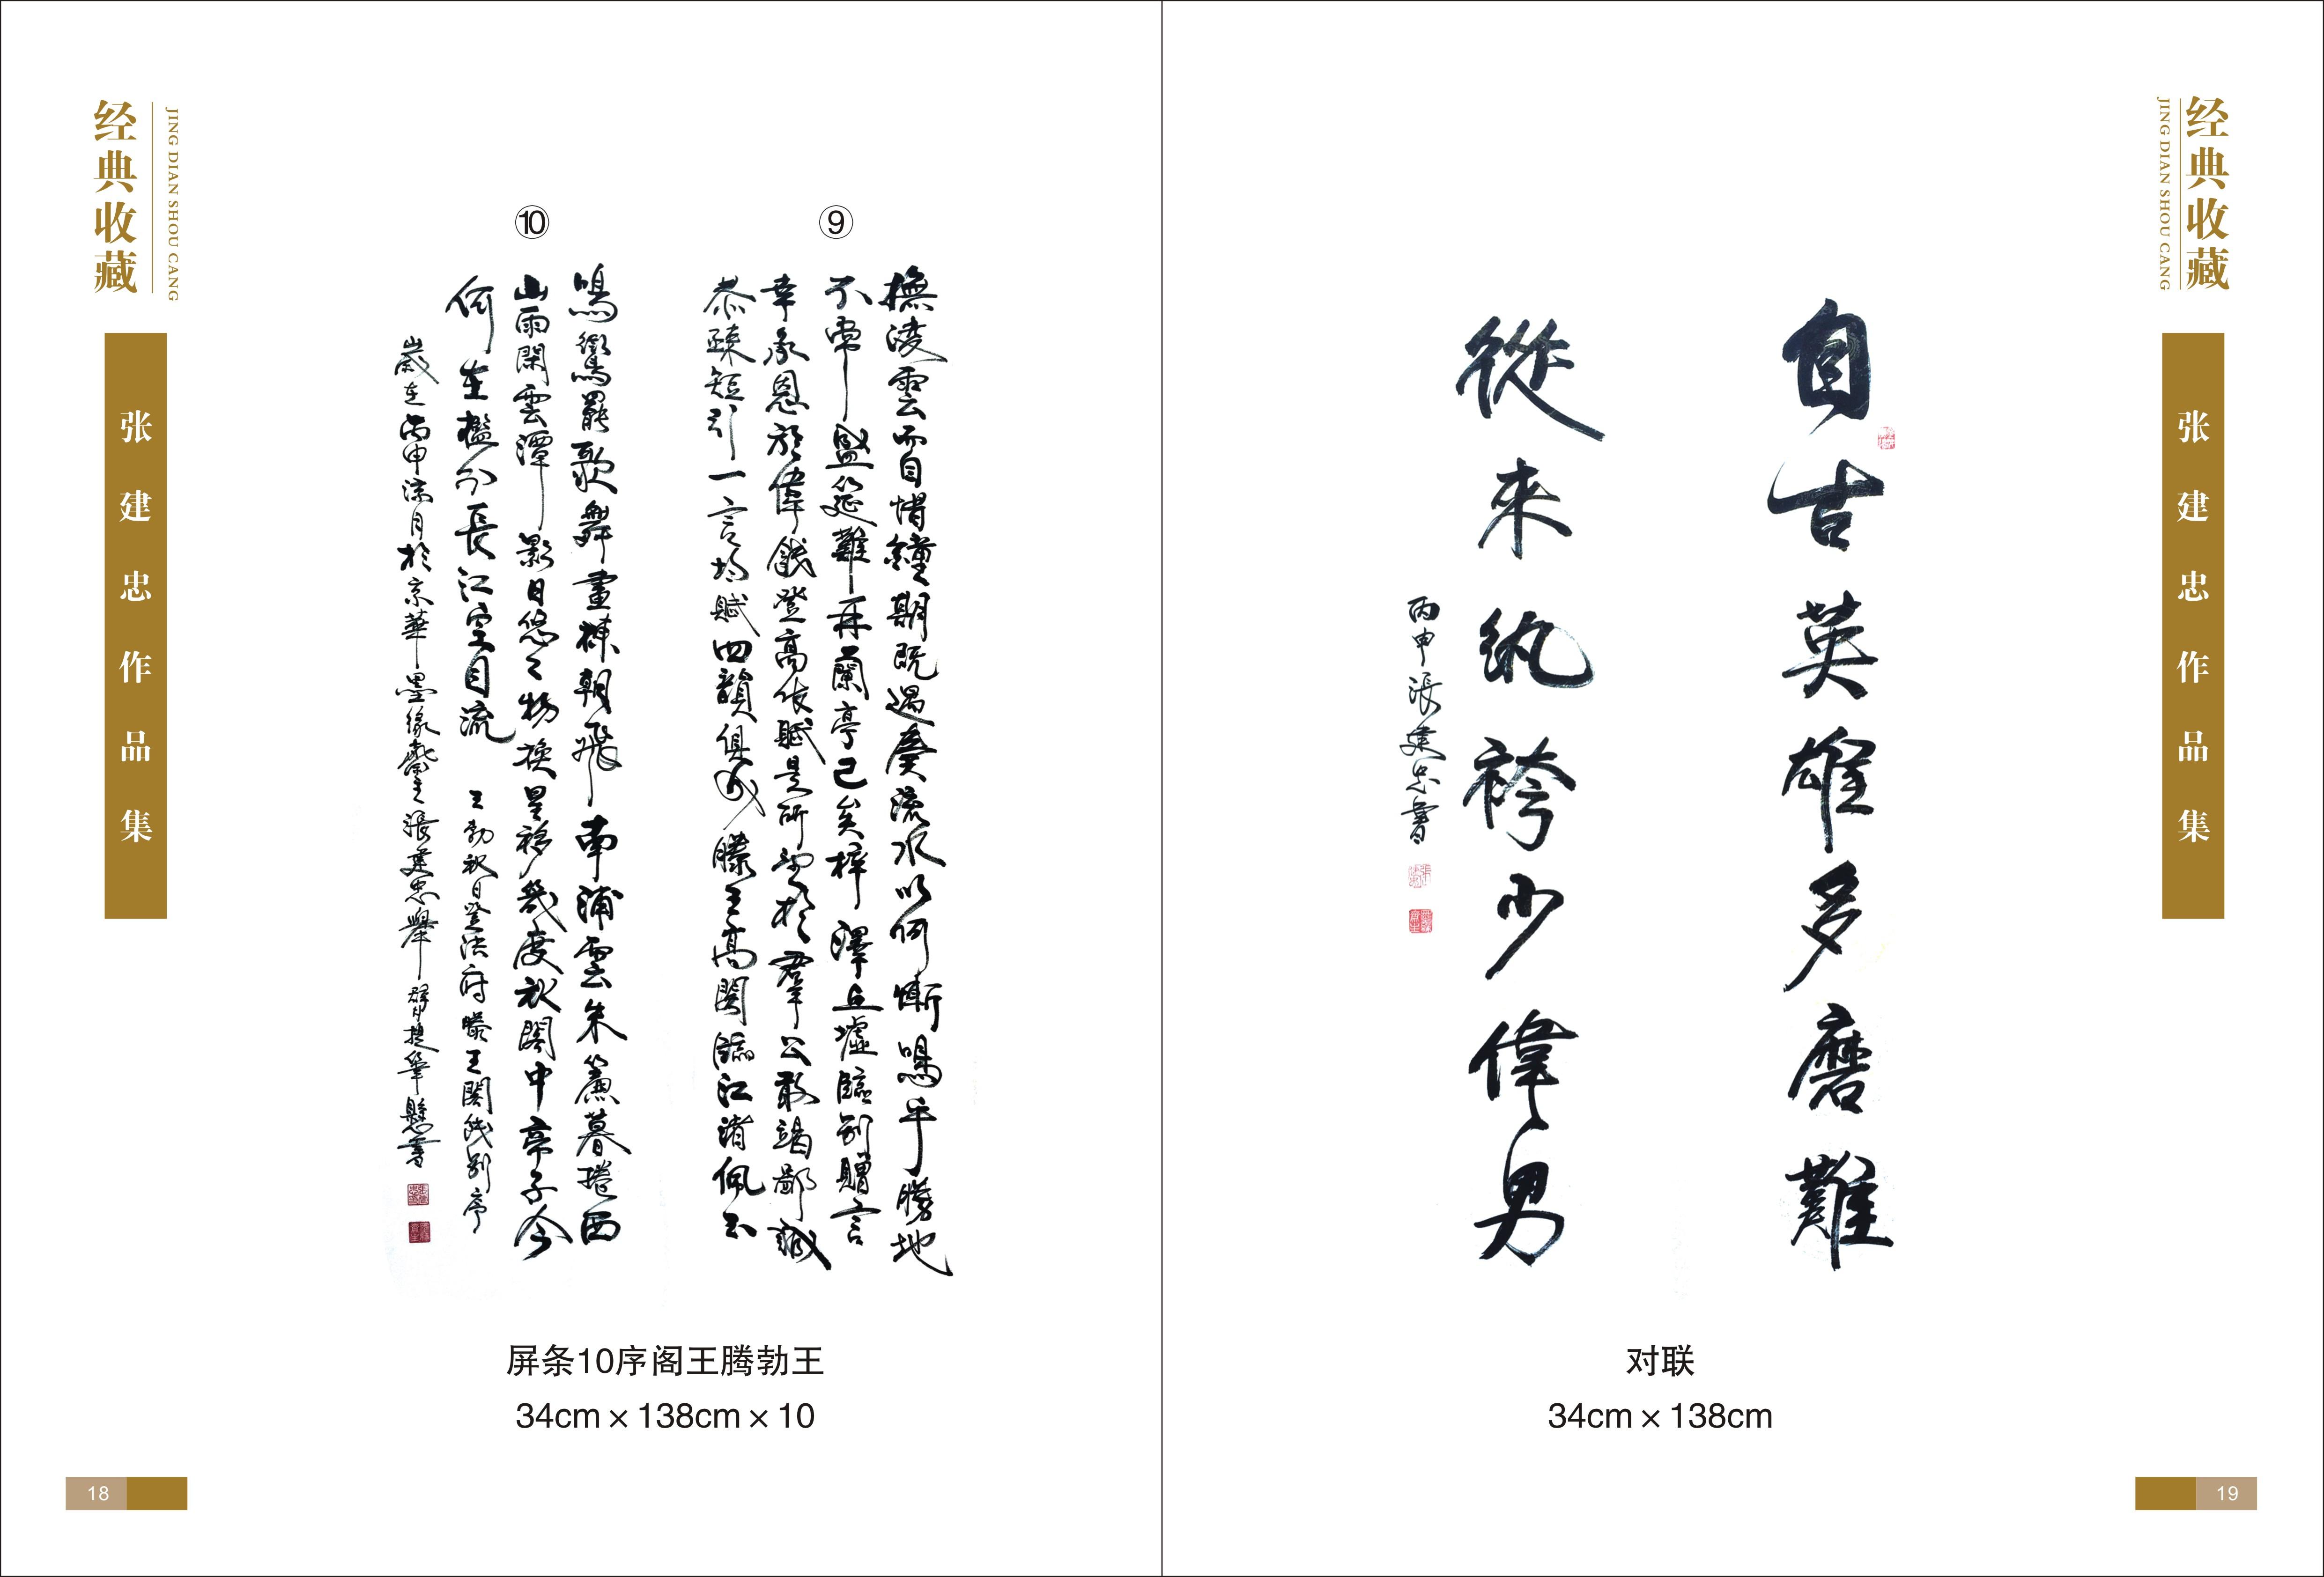 经典收藏
JING DIAN SHOU CANG
张建忠作品集
⑨
撫淩雲而自惜鐘期既遇奏流水以何慚嗚乎勝地
不常盛筵難再蘭亭已矣梓澤丘墟臨別贈言
幸承恩於偉餞登高作賦是所望於群公敢竭鄙誠
恭疎短引一言均賦四韻俱成滕王高閣臨江渚佩玉
⑩
鳴鸞罷歌舞畫棟朝飛南浦雲朱簾暮捲西
山雨閑雲潭影日悠々物換星移幾度秋閣中帝子今
何在檻外長江空自流
王勃秋日登洪府滕王閣餞別序
歲在丙申涼月於京華墨緣齋堂張建忠舉臂提筆懸書
屏条10序阁王腾勃王
34cm×138cm×10
18
经典收藏
JING DIAN SHOU CANG
张建忠作品集
自古英雄多磨難
從來紈袴少偉男
丙申張建忠書
对联
34cm×138cm
19